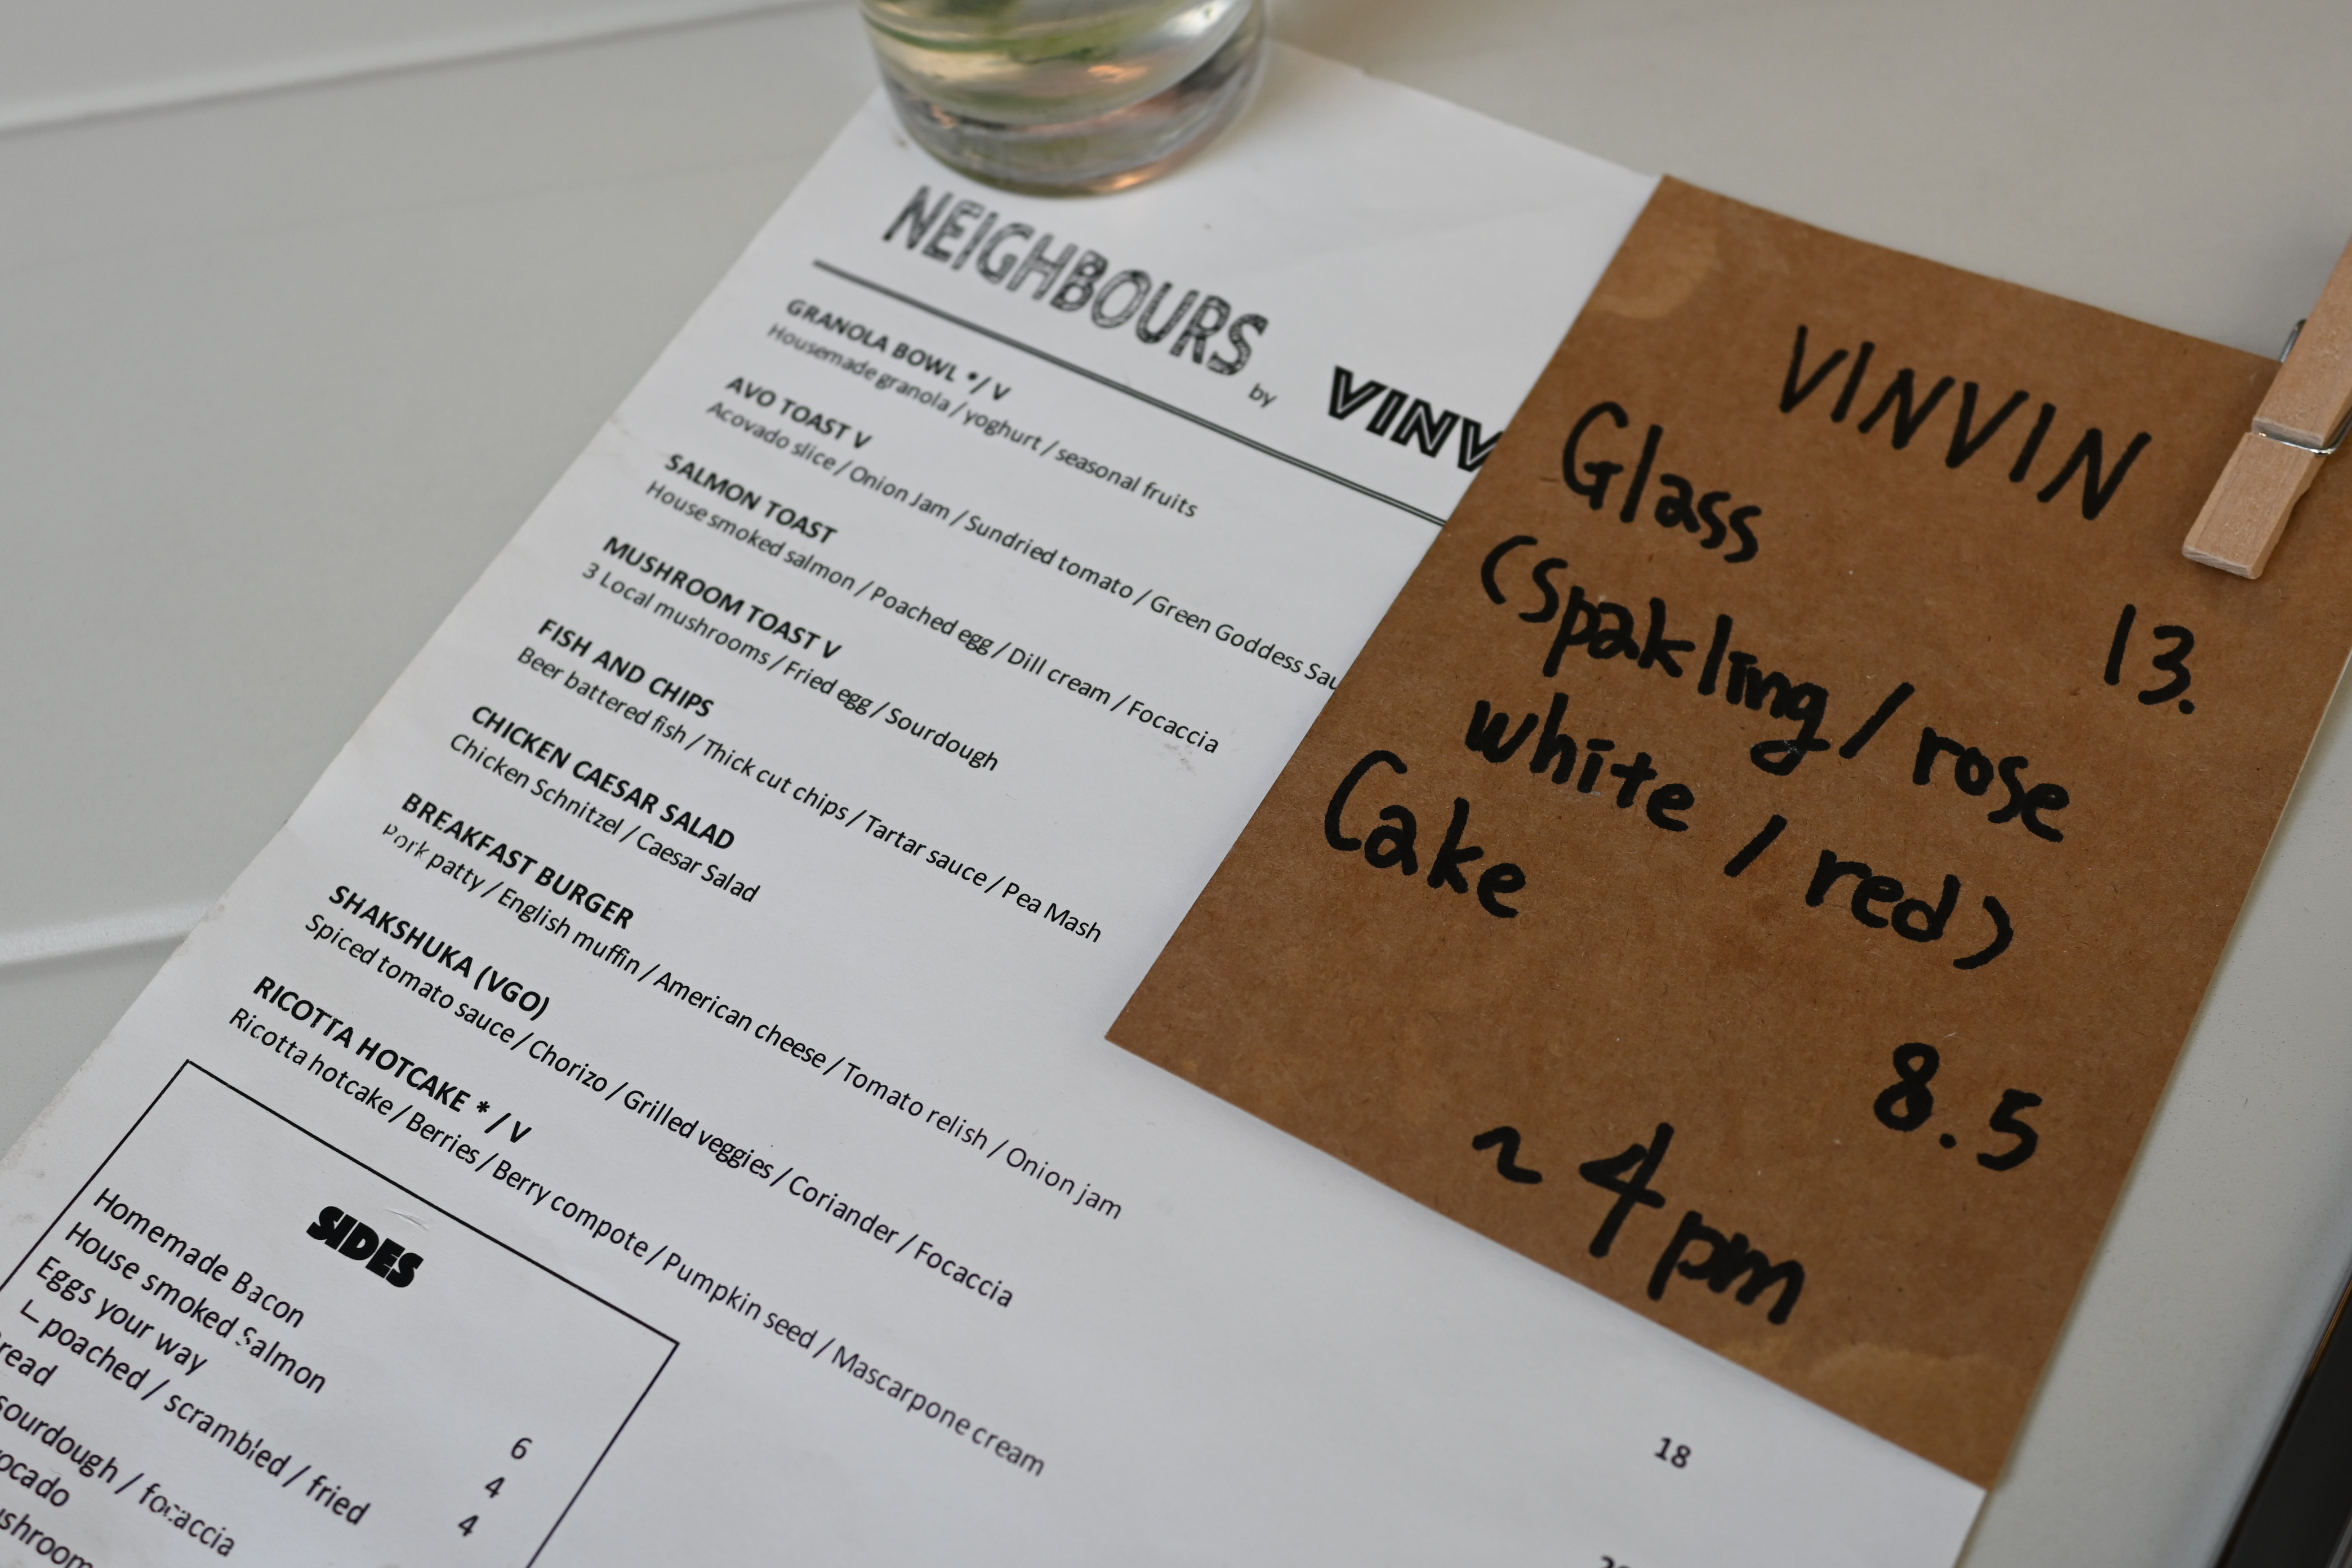 NEIGHBOURS by VINV
GRANOLA BOWL */ V
Housemade granola / yoghurt / seasonal fruits
AVO TOAST V
Acovado slice / Onion Jam / Sundried tomato / Green Goddess Sau
SALMON TOAST
House smoked salmon / Poached egg / Dill cream / Focaccia
MUSHROOM TOAST V
3 Local mushrooms / Fried egg / Sourdough
FISH AND CHIPS
Beer battered fish / Thick cut chips / Tartar sauce / Pea Mash
CHICKEN CAESAR SALAD
Chicken Schnitzel / Caesar Salad
BREAKFAST BURGER
Pork patty / English muffin / American cheese / Tomato relish / Onion jam
SHAKSHUKA (VGO)
Spiced tomato sauce / Chorizo / Grilled veggies / Coriander / Focaccia
RICOTTA HOTCAKE * / V
Ricotta hotcake / Berries / Berry compote / Pumpkin seed / Mascarpone cream
18
SIDES
Homemade Bacon 6
House smoked Salmon 4
Eggs your way 4
poached / scrambled / fried
read
sourdough / focaccia
ocado
shroom
VINVIN
Glass 13.
(Spakling / rose
white / red)
Cake 8.5
~ 4pm